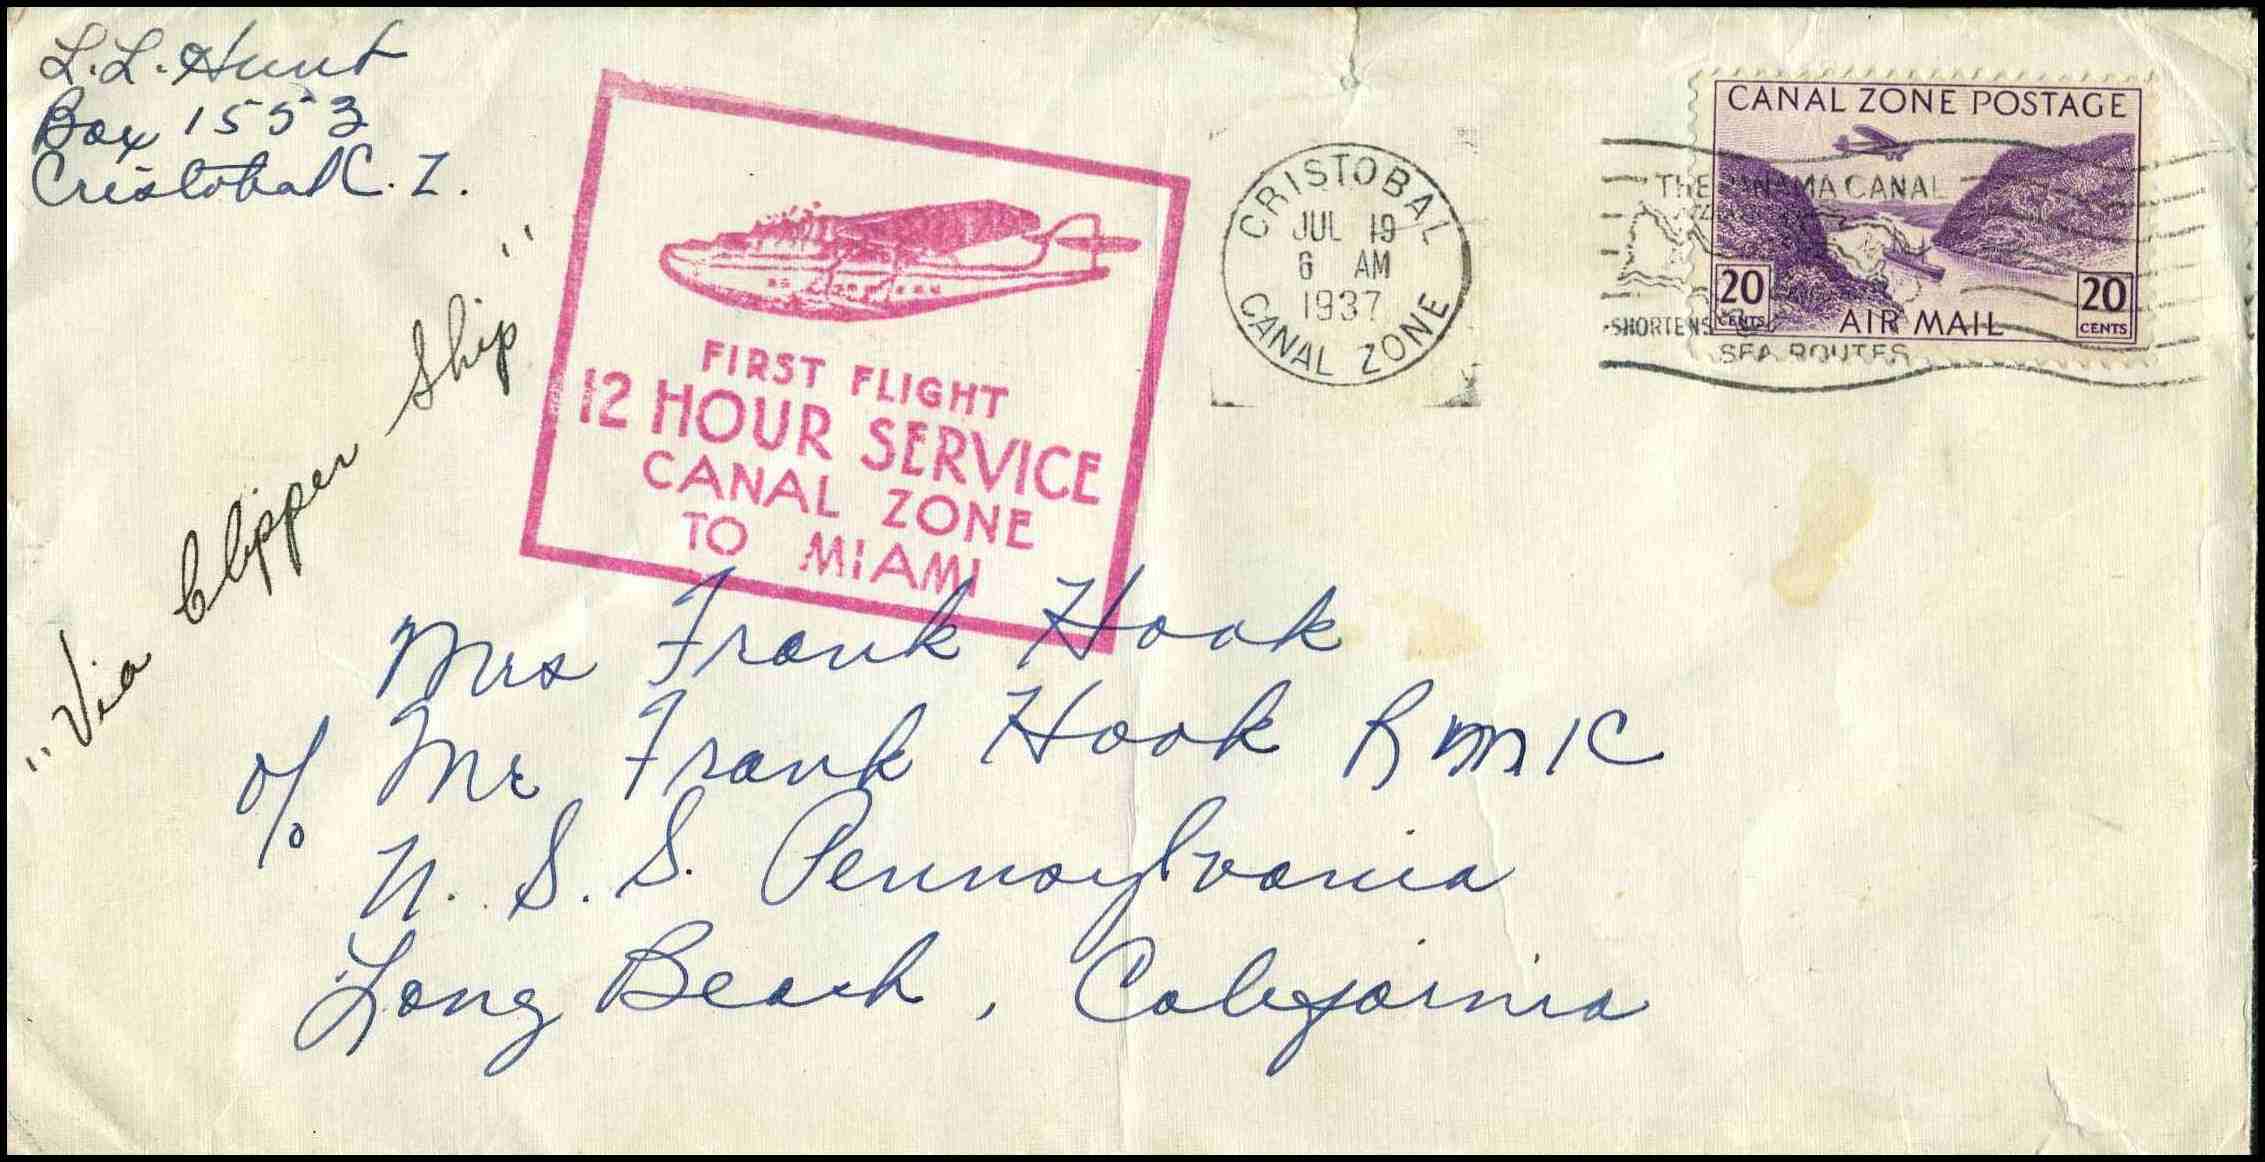 L. L. Hunt
Box 1553
Cristobal C. Z.
"Via Clipper Ship"
FIRST FLIGHT
12 HOUR SERVICE
CANAL ZONE
TO MIAMI
CRISTOBAL
JUL 19
6 AM
1937
CANAL ZONE
THE PANAMA CANAL
SHORTENS
SEA ROUTES
CANAL ZONE POSTAGE
20 CENTS
AIR MAIL
20 CENTS
Mrs Frank Hook
c/o Mr Frank Hook RM1C
U. S. S. Pennsylvania
Long Beach, California